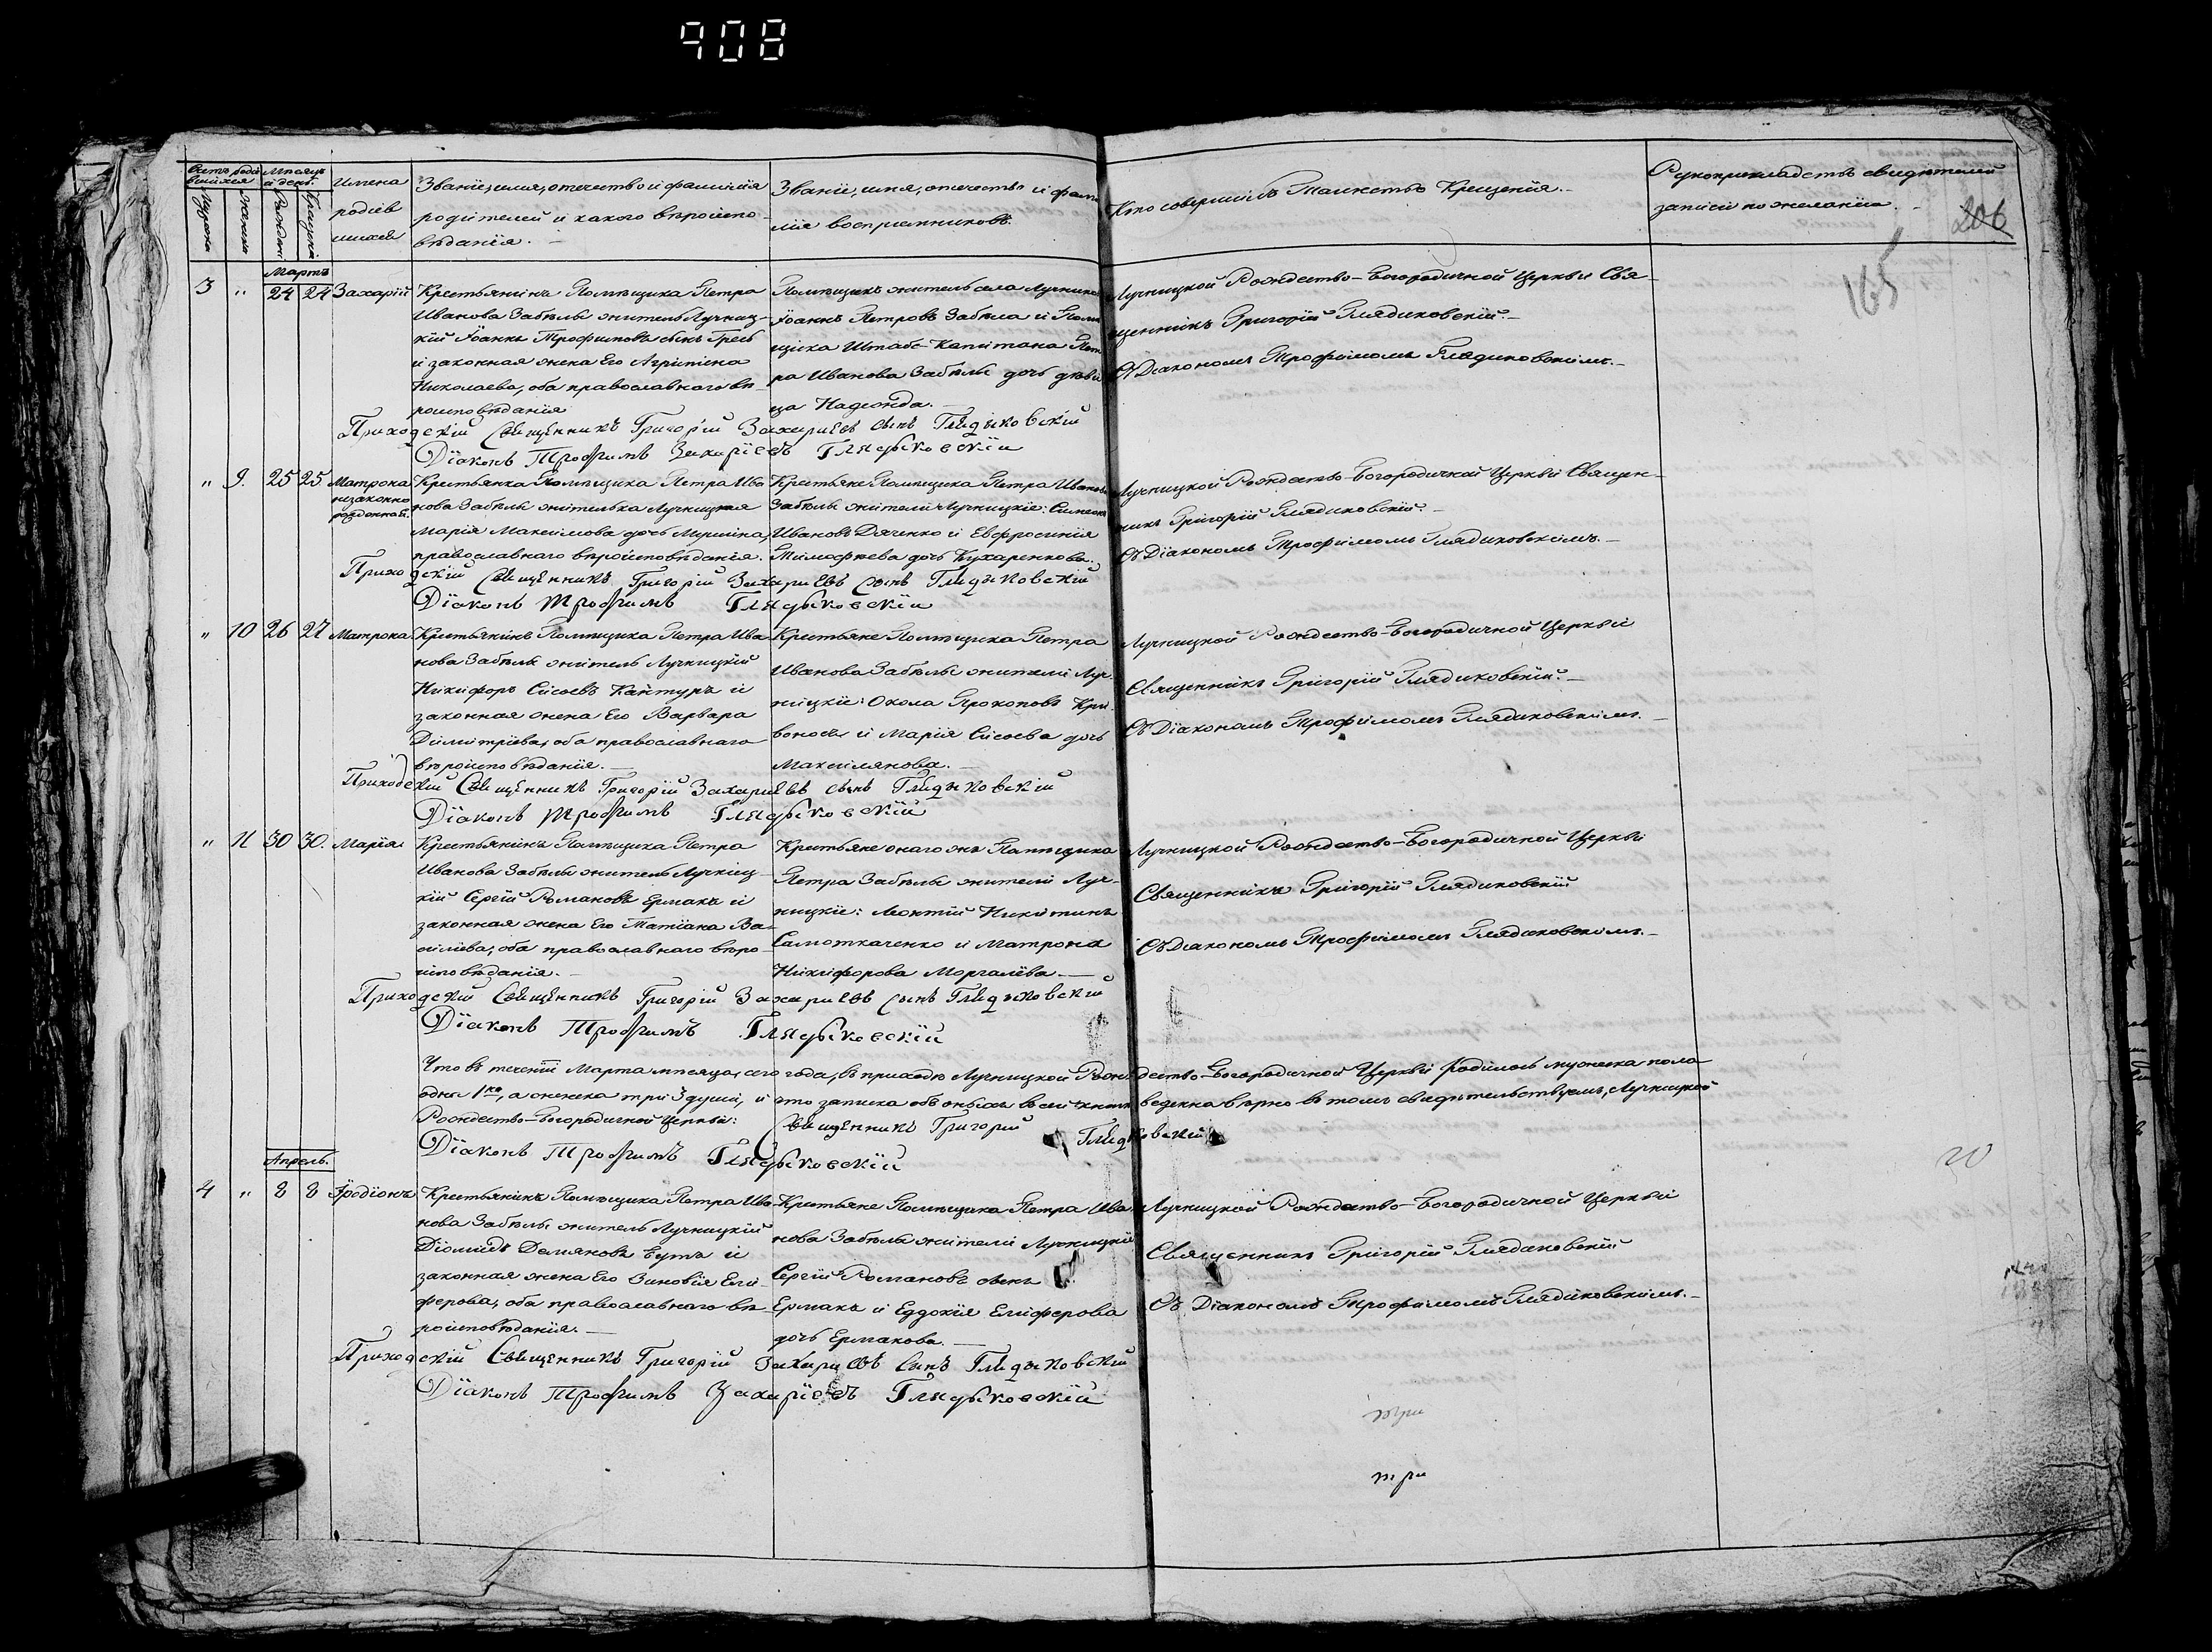 908
Счетъ родив
шихся
Мѣсяцъ
и день.
Мужска
Женска
Рожденія
Крещенія
Имена
родив
шихся
Званіе, имя, отечество и фамилія
родителей и какого вѣроиспо-
вѣданія.
Званіе, имя, отечество и фами
лія воспріемниковъ.
Кто совершилъ Таинство Крещенія.
Рукоприкладство свидѣтелей
записи по желанію.
206
165
Мартъ
3 " 24 24 Захарій
Крестьянинъ Помѣщика Петра
Иванова Забѣлы житель Лучниц-
кій Іоаннъ Трофимовъ сынъ
и законная жена Его Агрипина
Николаева, оба православнаго вѣ-
роисповѣданія
Помѣщикъ житель села
Іоаннъ Петровъ Забѣла и Помѣ
щика Штабс-Капитана Пет
ра Иванова Забѣлы дочь дѣви
ца Надежда.
Лучницкой Рождество-Богородичной Церкви Свя-
щенникъ Григорій Глядиковскій.
Съ Діакономъ Трофимомъ Глядиковскимъ.
Приходскій Священникъ Григорій Захаріевъ сынъ Глядыковскій
Діаконъ Трофимъ Захаріевъ Глядыковскій
" 9. 25 25 Матрона
незаконно
рожденная.
Крестьянка Помѣщика Петра Ива
нова Забѣлы жителька Лучницкая
Марія Максимова дочь
православнаго вѣроисповѣданія.
Крестьяне Помѣщика Петра Иванова
Забѣлы жители Лучницкіе: Симеонъ
Ивановъ Дяченко и Евфросинія
Тимофеева дочь Кухаренкова.
Лучницкой Рождество-Богородичной Церкви Священ-
никъ Григорій Глядиковскій.
Съ Діакономъ Трофимомъ Глядиковскимъ.
Приходскій Священникъ Григорій Захаріевъ Сынъ Глядыковскій
Діаконъ Трофимъ Глядыковскій
" 10 26 27 Матрона
Крестьянинъ Помѣщика Петра Ива
нова Забѣлы житель Лучницкій
Никифоръ Сисоевъ Кантуръ и
законная жена Его Варвара
Димитріева, оба православнаго
вѣроисповѣданія.
Крестьяне Помѣщика Петра
Иванова Забѣлы жители Луч-
ницкіе: Прокоповъ Кри
воносъ и Марія Сисоева дочь
Лучницкой Рождество-Богородичной Церкви
Священникъ Григорій Глядиковскій.
Съ Діакономъ Трофимомъ Глядиковскимъ.
Приходскій Священникъ Григорій Захаріевъ сынъ Глядыковскій
Діаконъ Трофимъ Глядыковскій
" 11 30 30. Марія
Крестьянинъ Помѣщика Петра
Иванова Забѣлы житель Лучниц-
кій Сергій Романовъ Ермакъ и
законная жена Его Татіана Ва-
силіева, оба православнаго вѣро-
исповѣданія.
Крестьяне онаго жъ Помѣщика
Петра Забѣлы жители Луч-
ницкіе: Леонтій Никитинъ
Самоткаченко и Матрона
Никифорова Моргалёва
Лучницкой Рождество-Богородичной Церкви
Священникъ Григорій Глядиковскій
Съ Діакономъ Трофимомъ Глядиковскимъ.
Приходскій Священникъ Григорій Захаріевъ Сынъ Глядыковскій
Діаконъ Трофимъ Глядыковскій
Что въ теченіи Марта мѣсяца, сего года, въ приходѣ Лучницкой Рождество-Богородичной Церкви родилось мужеска пола
одна 1, а женска три 3 души, и что записка объ оныхъ въ сей книгѣ ведена вѣрно въ томъ свидѣтельствуемъ, Лучницкой
Рождество-Богородичной Церкви:
Священникъ Григорій Глядковскій
Діаконъ Трофимъ Глядыковскій
Апрель.
4 " 8 8 Іродіонъ
Крестьянинъ Помѣщика Петра Ива
нова Забѣлы житель Лучницкій
Діомидъ Демяновъ Бутъ и
законная жена Его Зиновія Ели-
ферова, оба православнаго вѣ-
роисповѣданія.
Крестьяне Помѣщика Петра Ива
нова Забѣлы жители Лучницкіе
Сергій Романовъ сынъ
Ермакъ и Евдокія Елиферова
дочь Ермакова.
Лучницкой Рождество-Богородичной Церкви
Священникъ Григорій Глядиковскій
Съ Діакономъ Трофимомъ Глядиковскимъ.
Приходскій Священникъ Григорій Захаріевъ Сынъ Глядыковскій
Діаконъ Трофимъ Захаріевъ Глядыковскій
три
три